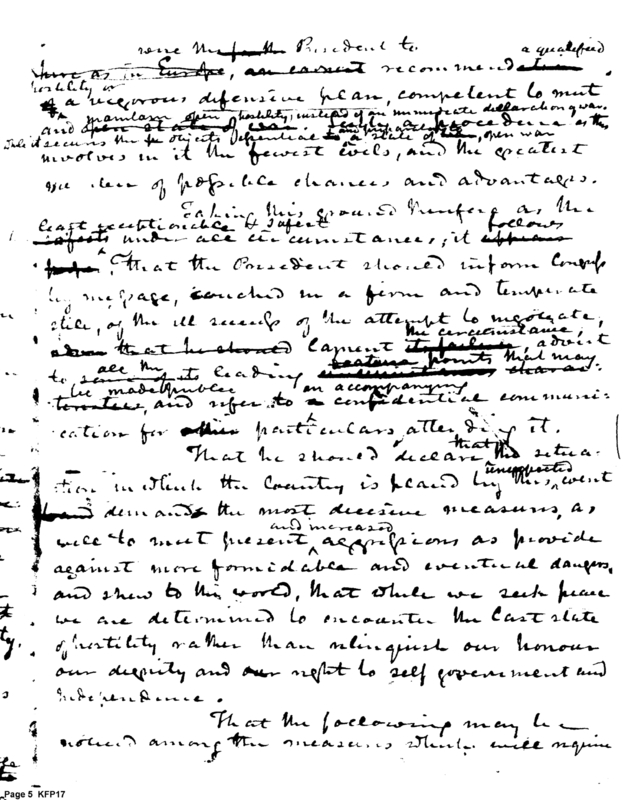 were the for the President to a qualified
have as in Europe, an recommend
hostility or
a vigorous defensive plan, competent to meet
maintain open hostility, instead of an immediate declaration of war.
and open state of war. Such a procedure as this
while it secures the objects a state of open war
involves in it the fewest evils, and the greatest
number of possible chances and advantages.
Taking this ground therefore as the
least exceptionable & safest follows
under all circumstances, it appears
, That the President should inform Congress
by message, couched in a firm and temperate
stile, of the ill success of the attempt to negotiate,
the circumstance,
that he should lament its failure, advert
all the features points that may
to leading
be made public an accompanying
and refer to a confidential communi-
cation for particulars attending it.
That he should declare that the situa-
unexpected
tion in which the Country is placed by this event
demands the most decisive measures, as
and increased
well to meet present aggressions as provide
against more formidable and eventual dangers,
and shew to the world, that while we seek peace
we are determined to encounter the last state
of hostility rather than relinquish our honour
our dignity and our right to self government and
Independence.
That the following may be
noticed among the measures which will require
Page 5 KFP17